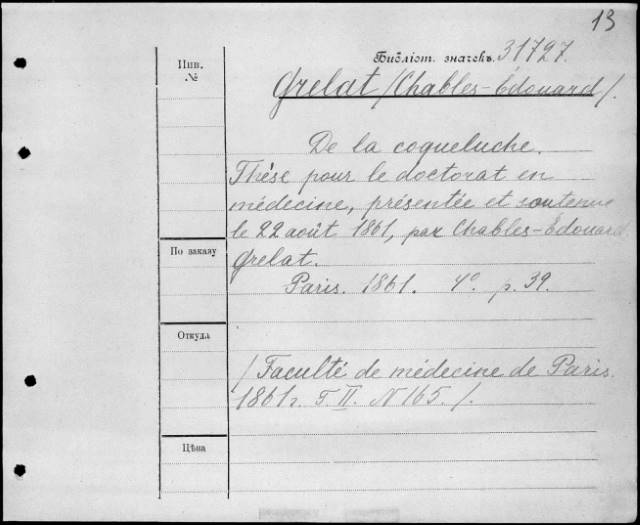 13
Библіот. значекъ 31727.
Инв.
№
Grelat /Chables-Édouard/.
De la coqueluche.
Thése pour le doctorat en
médecine, présentée et soutenue
le 22 août 1861, par Chables-Édouard
Grelat.
Paris. 1861. 4º. p. 39.
По заказу
Откуда
/Faculté de médecine de Paris.
1861г. T. II. N 165./.
Цѣна